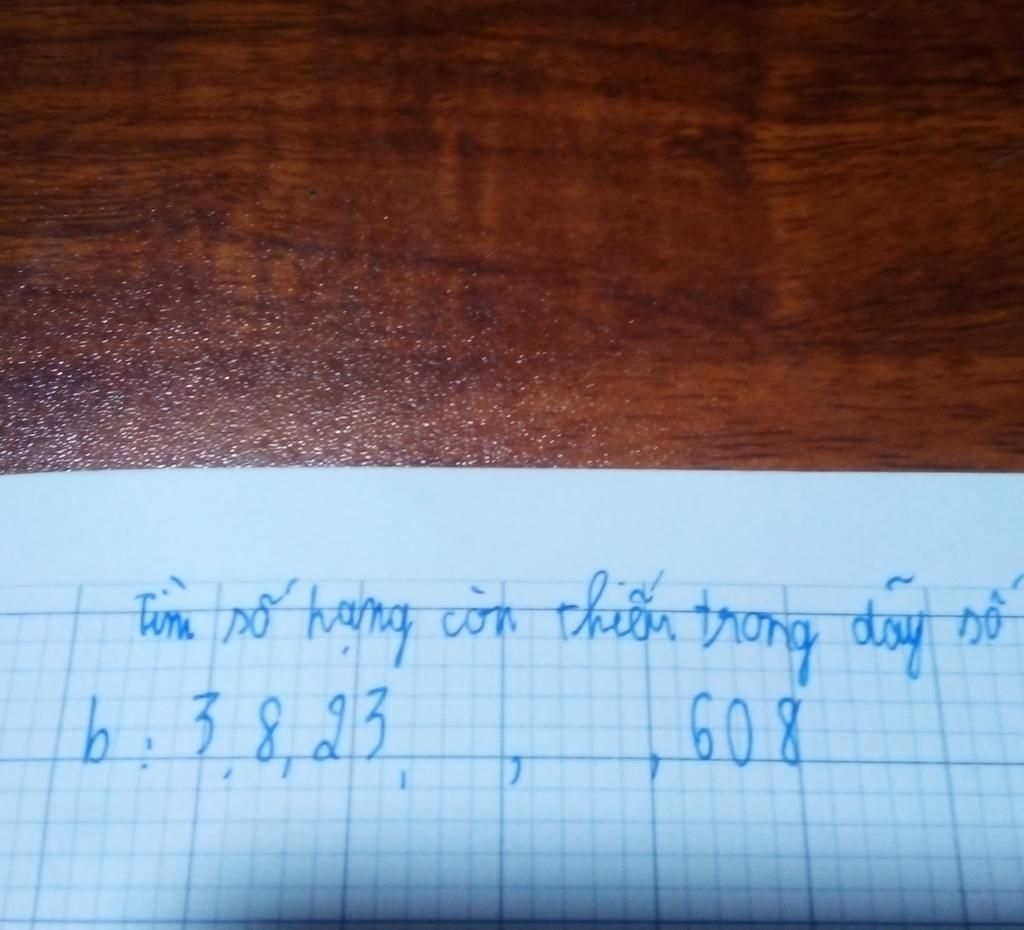 Tìm số hạng còn thiếu trong dãy số
b: 3, 8, 23, , , 608